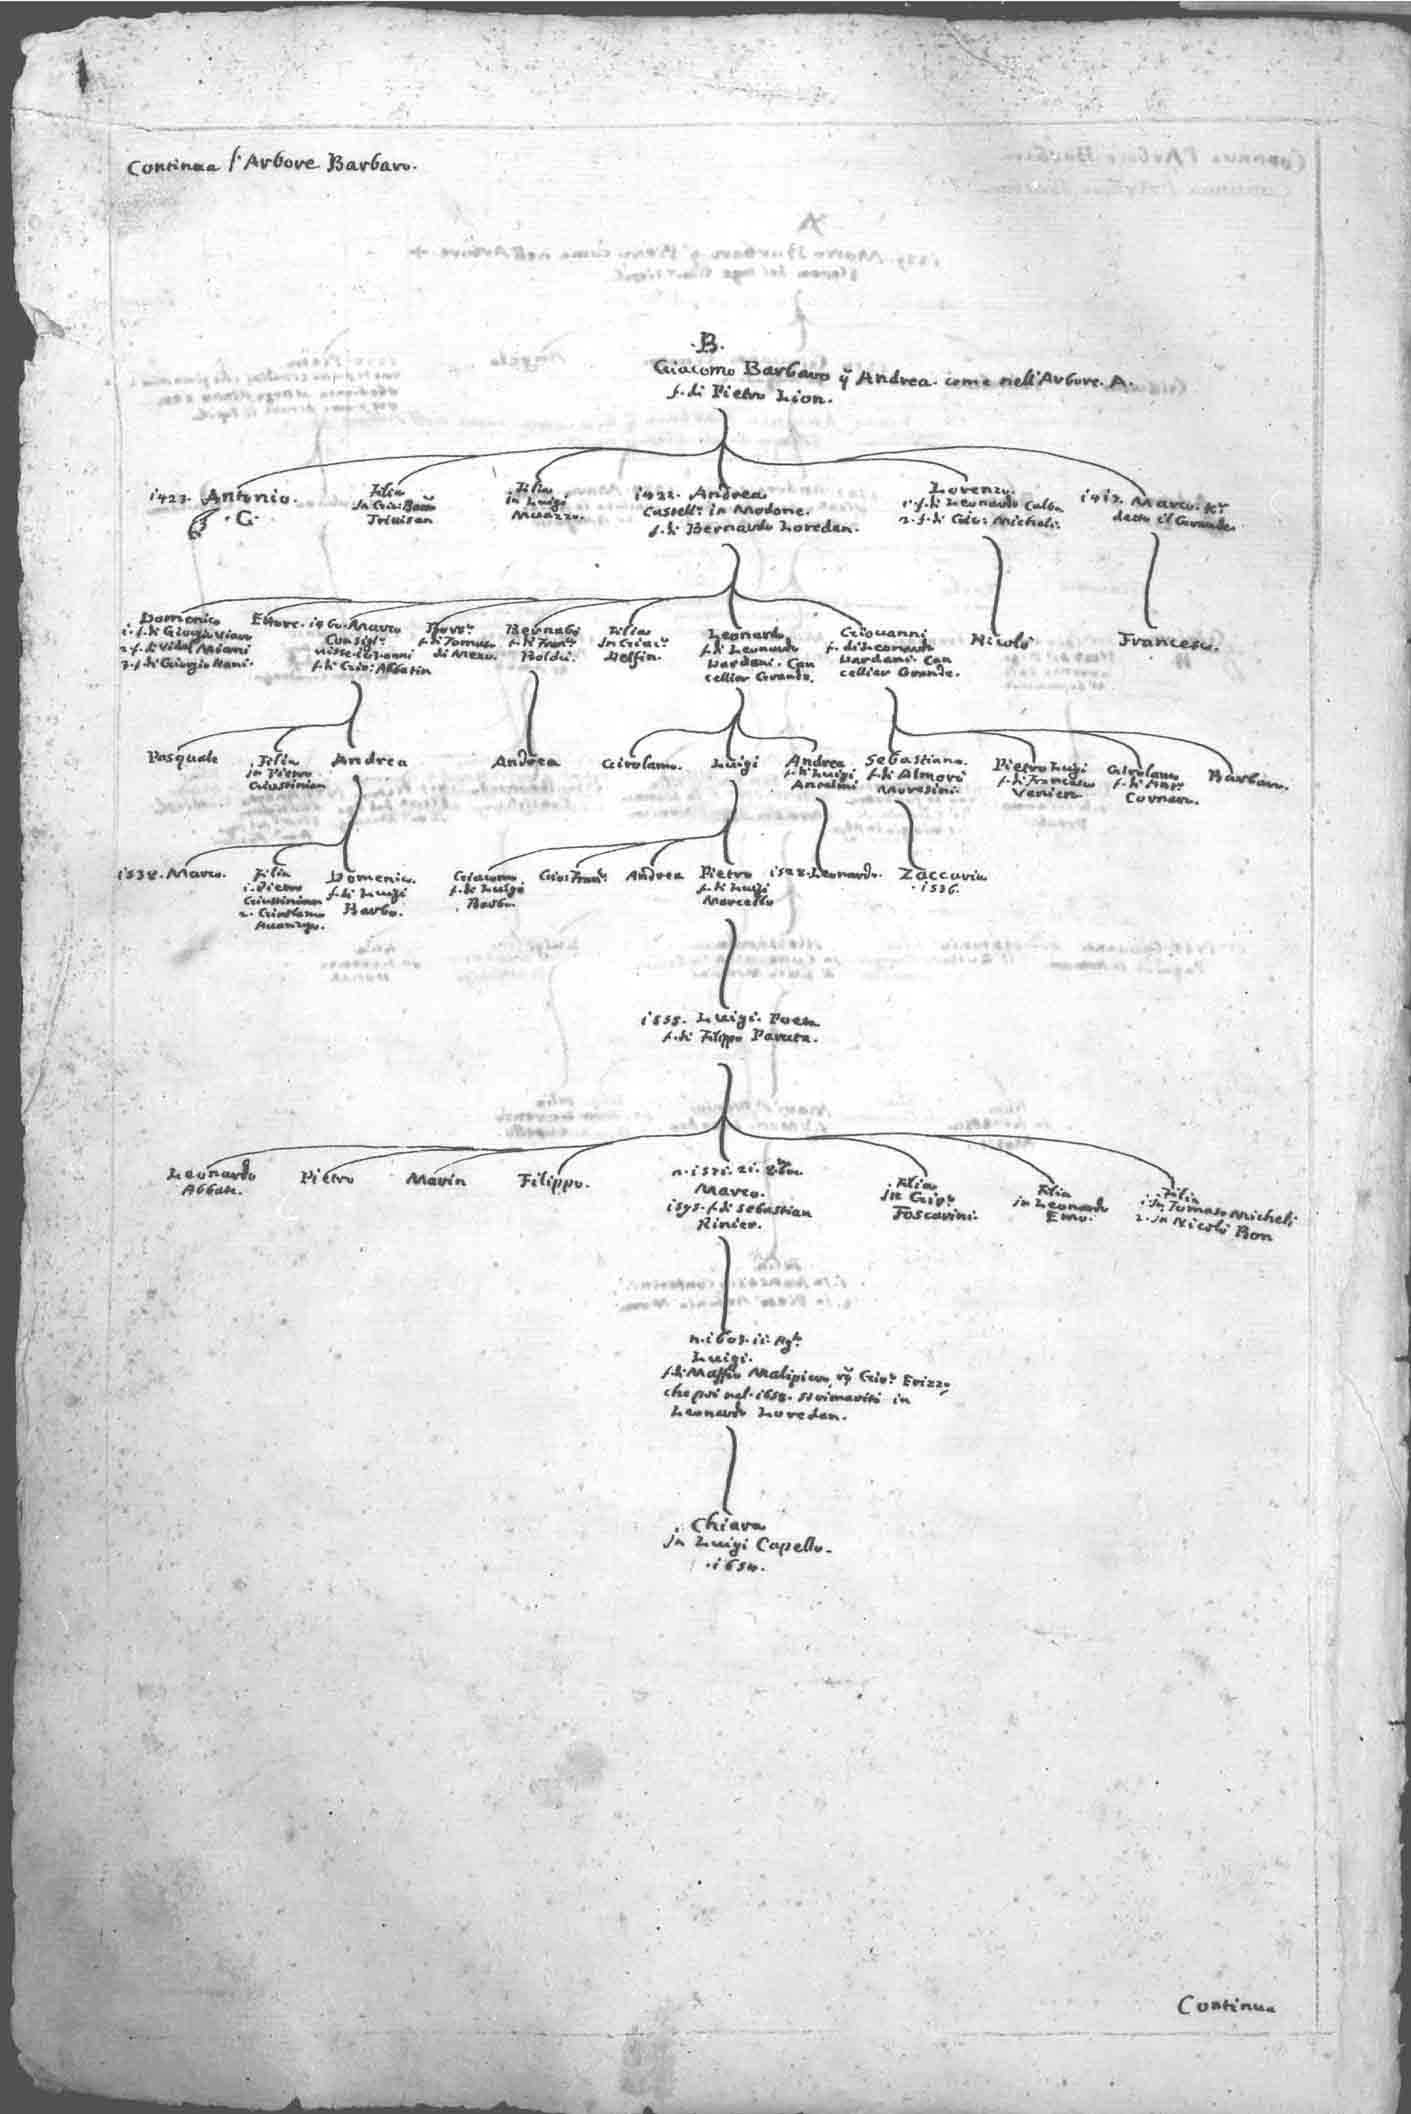 Continua l'Arbore Barbaro.
.B.
Giacomo Barbaro q̃ Andrea. come nell'Arbore. A.
f. di Pietro Lion.
1423. Antonio.
.C.
Filia
In Gio: Batta
Triuisan
Filia
in Luigi
Muazzo.
1422. Andrea
Castell.º in Modone.
f. di Bernardo Loredan.
Lorenzo.
1. f. di Leonardo Calbo
2. f. di Gio: Micheli.
1417. Marco. K.r
detto il Grande.
Domenico
1. f. di Giorgio Viaro
2. f. di Vidal Miani
3. f. di Giorgio Nani.
Ettore.
1460. Marco
Consigl.r
uisse anni
f. di Gio: Abbatin
f. di Tomaso
di Mezo.
Bernabò
f. di Fran.co
Boldù.
Filia
In Giac.o
Delfin.
Leonardo
f. di Leonardo
Dardani. Can
cellier Grande.
Giouanni
f. di Leonardo
Dardani. Can
cellier Grande.
Nicolò
Francesco.
Pasquale
Filia
in Pietro
Giustinian
Andrea
Andrea
Girolamo.
Luigi
Andrea
f. di Luigi
Sebastiano.
f. di Almorò
Moresini.
Pietro Luigi
f. di Francesco
Venier
Girolamo
f. di
Corner.
Barbaro.
1538. Marco.
Filia
1. Pietro
Giustinian
2. Girolamo
Domenico.
f. di Luigi
Barbo.
Giacomo
f. di Luigi
Barbo.
Gio: Fran.co
Andrea
Pietro
f. di Luigi
Marcello
1528. Leonardo.
Zaccaria
.1536.
1555. Luigi. Poeta
f. di Filippo Paruta.
Leonardo
Abbate.
Pietro
Marin
Filippo.
n. 1571. 21. 8bre
Marco.
1595. f. di Sebastian
Rinier.
Filia
in Gio:
Foscarini.
Filia
in Leonardo
Emo.
Filia
1. in Tomaso Micheli
2. in Nicolò Bon
n. 1609. 11. Ag.to
Luigi.
f. di Maffio Malipiero, Erizzo,
che poi nel. 1658. si rimaritò in
Leonardo Loredan.
Chiara
in Luigi Capello.
.1654.
Continua